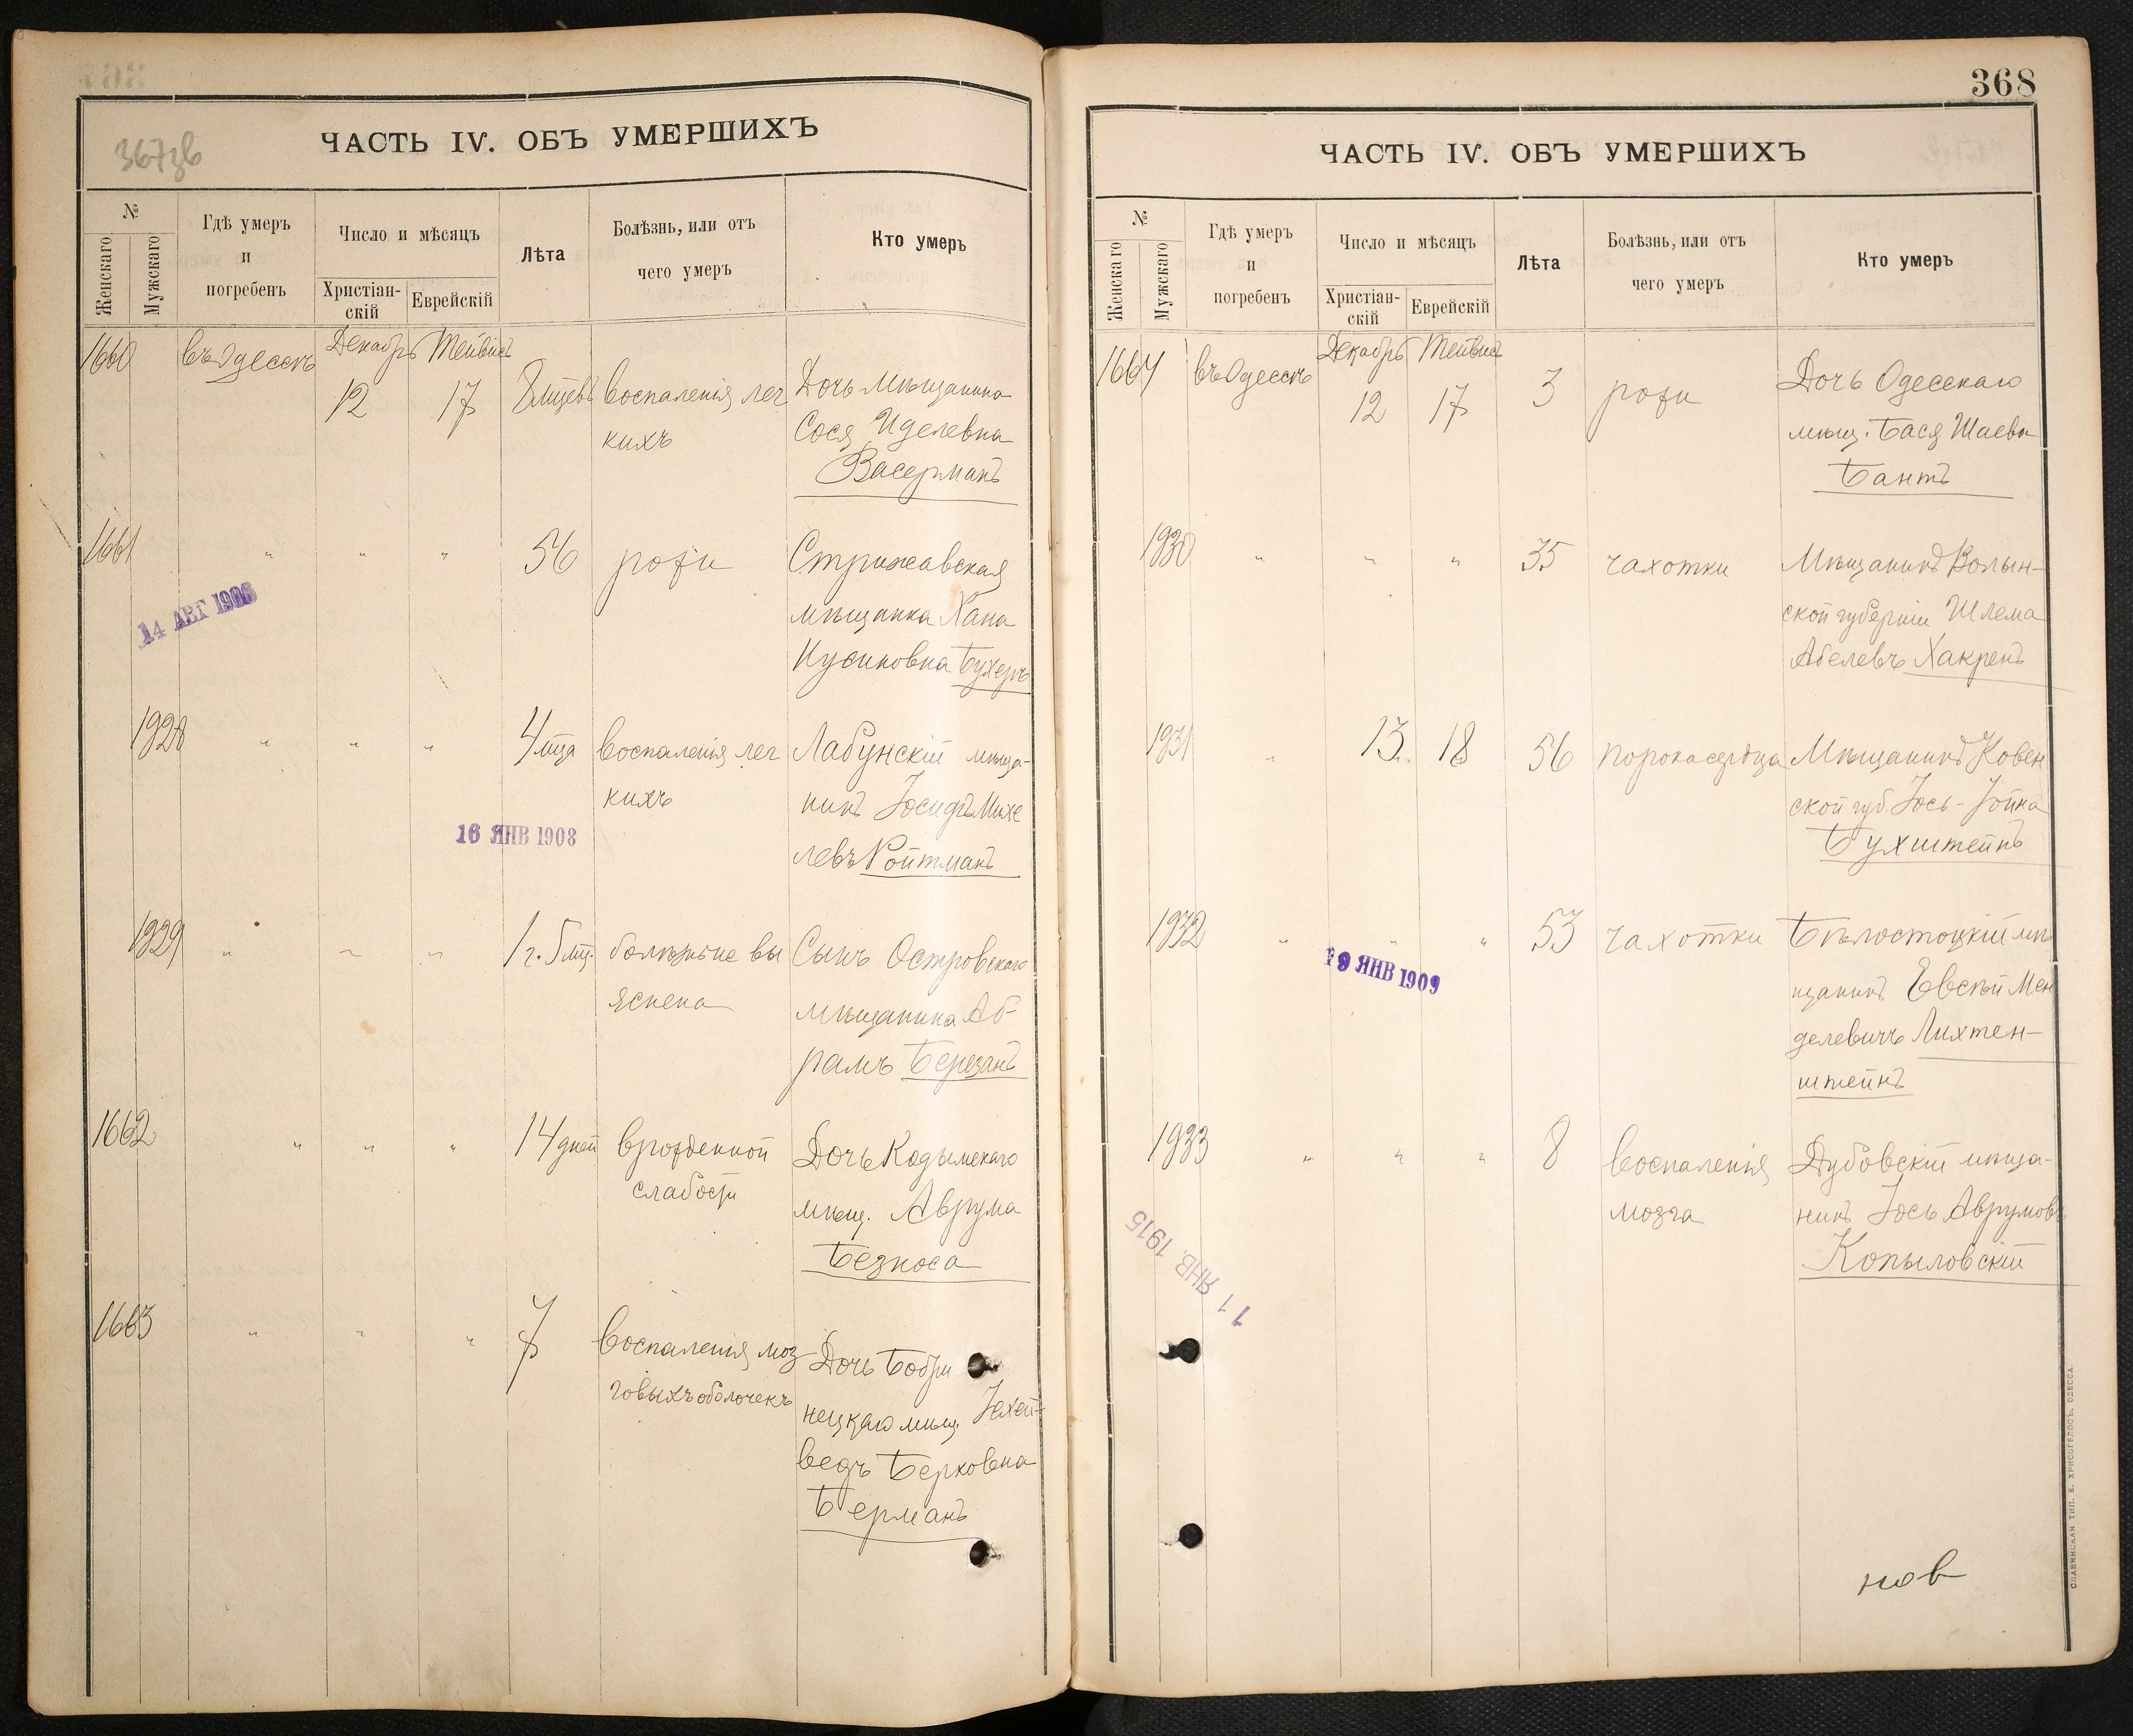 367зв
ЧАСТЬ IV. ОБЪ УМЕРШИХЪ
№
Женскаго
Мужскаго
Гдѣ умеръ
и
погребенъ
Число и мѣсяцъ
Христіан-
скій
Еврейскій
Лѣта
Болѣзнь, или отъ
чего умеръ
Кто умеръ
1660 въ Одессѣ Декабрь Тейвисъ
12 17 8 мцевъ воспаленія лег Дочь Мѣщанина
кихъ Сося Иделевна
Васерманъ
1661 " " " 56 рожи Стрижавская
мѣщанка Хана
Нусиновна Бухеръ
14 АВГ 1906
1928 " " " 4 мца воспаленія лег Лабунскій мѣща-
кихъ нинъ Іосифъ Михе
левъ Ройтманъ
16 ЯНВ 1908
1929 " " " 1 г. 5 мц. болѣзнь не вы Сынъ Островскаго
яснена мѣщанина Аб-
рамъ Березанъ
1662 " " " 14 дней врожденной Дочь Кодымскаго
слабости мѣщ. Аврума
Безноса
1663 " " " 7 воспаленія моз Дочь Бобри
говыхъ оболочекъ нецкаго мѣщ. Іохе
ведъ Берковна
Берманъ
368
ЧАСТЬ IV. ОБЪ УМЕРШИХЪ
№
Женскаго
Мужскаго
Гдѣ умеръ
и
погребенъ
Число и мѣсяцъ
Христіан-
скій
Еврейскій
Лѣта
Болѣзнь, или отъ
чего умеръ
Кто умеръ
1664 въ Одессѣ Декабрь Тейвисъ
12 17 3 рожи Дочь Одесскаго
мѣщ. Бася Шаевн
Бантъ
1930 " " " 35 чахотки Мѣщанинъ Волын-
ской губерніи Шлема
Абелевъ Хакренъ
1931 " 13 18 56 порока сердца Мѣщанинъ Ковен
ской губ. Іось-Іойна
Бухштейнъ
1932 " " " 53 чахотки Бѣлостоцкій мѣ
щанинъ Евсѣй Мен
делевичъ Лихтен-
штейнъ
19 ЯНВ 1909
1933 " " " 8 воспаленія Дубовскій мѣща-
мозга нинъ Іось Аврумовъ
Копыловскій
11 ЯНВ. 1915
нов
СЛАВЯНСКАЯ ТИП. Е. ХРИСОГЕЛОСЪ, ОДЕССА.